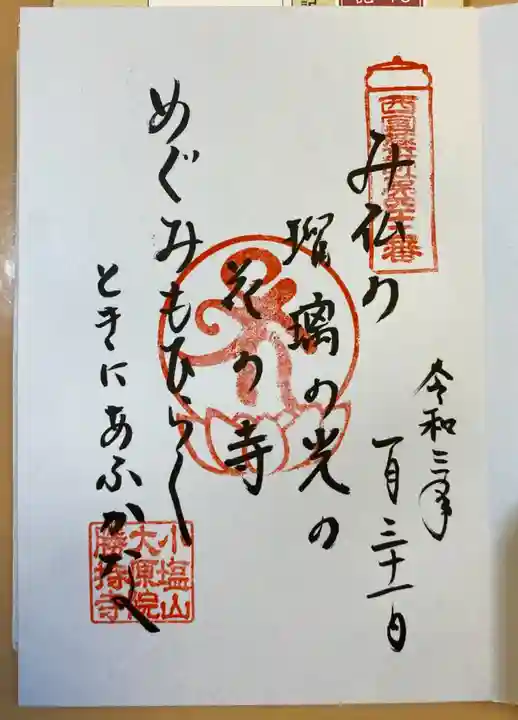 西國薬師
四十二番
令和三年
一月三十一日
み仏の
瑠璃の光の
花の寺
めぐみもひらく
ときにあふかな
小塩山
大原院
勝持寺